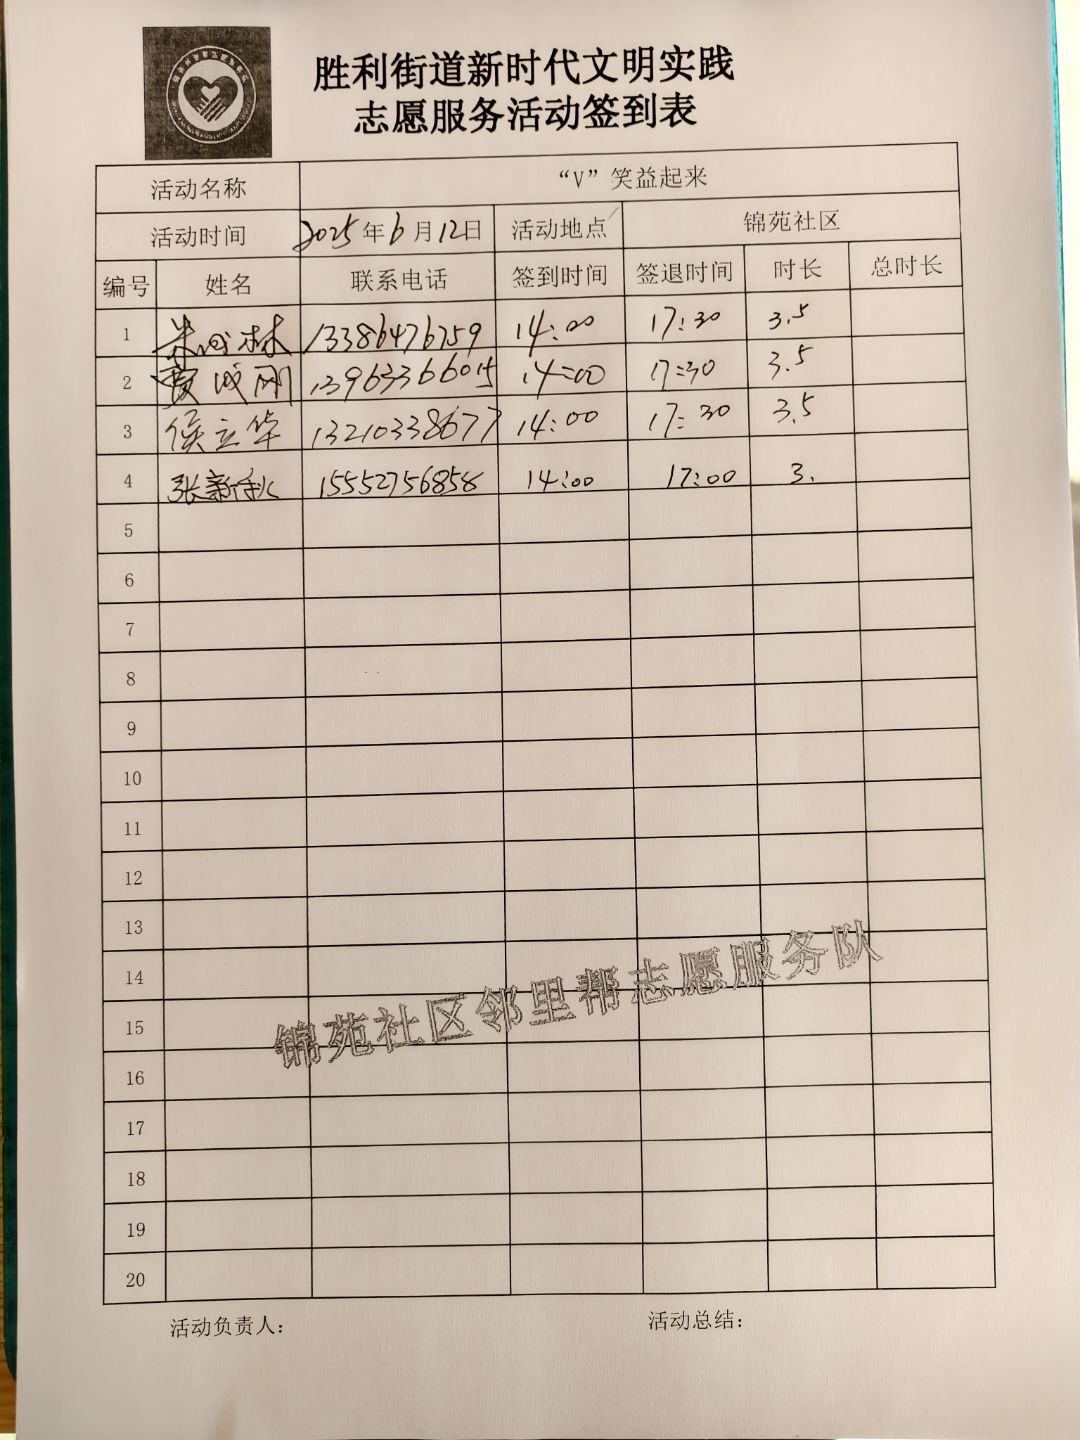 胜利街道新时代文明实践
志愿服务活动签到表
活动名称 “V”笑益起来
活动时间 2025年6月12日 活动地点 锦苑社区
编号 姓名 联系电话 签到时间 签退时间 时长 总时长
1 林 13386476759 14:00 17:30 3.5
2 贾成刚 13963366015 14:00 17:30 3.5
3 侯立华 13210338677 14:00 17:30 3.5
4 张新秋 15552756858 14:00 17:00 3.
5
6
7
8
9
10
11
12
13
14
15
16
17
18
19
20
锦苑社区邻里帮志愿服务队
活动负责人： 活动总结：